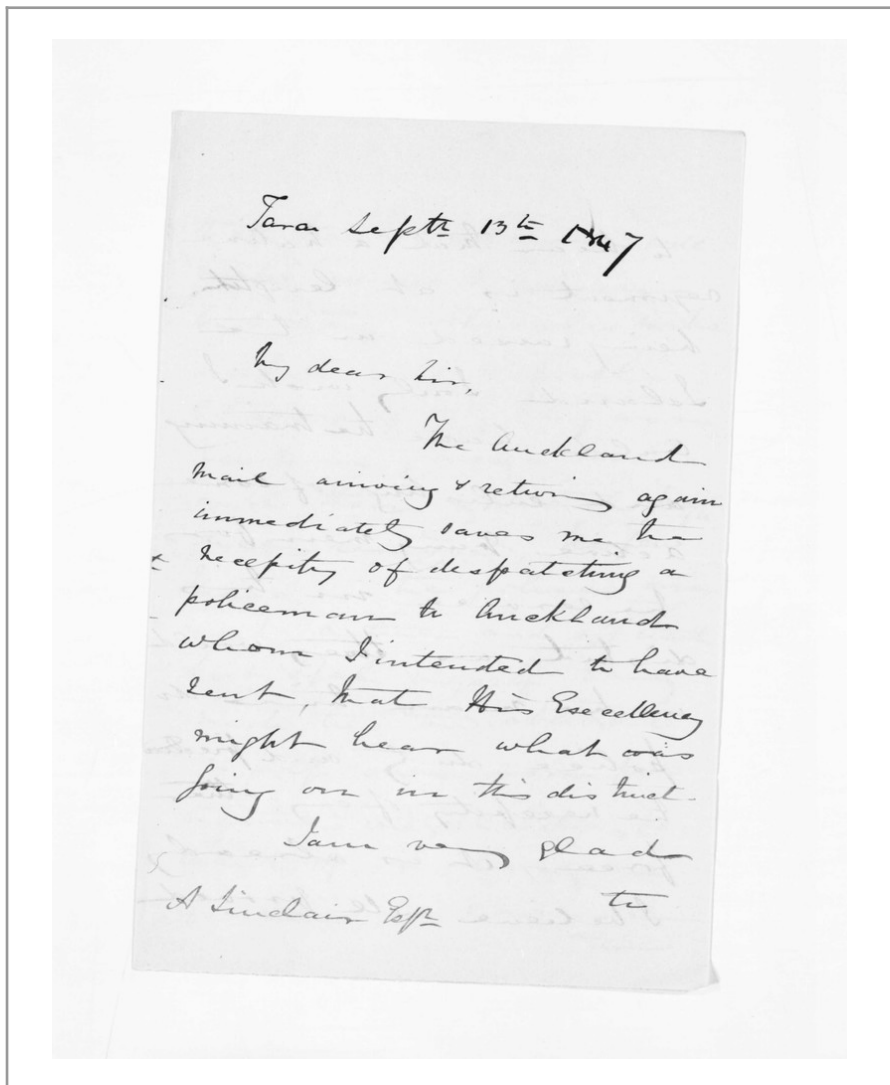 Septh 13th 1847
My dear Sir,
The Auckland
mail arriving & returning again
immediately saves me the
necessity of despatching a
policeman to Auckland
whom I intended to have
sent, that His Excellency
might hear what was
going on in this district.
I am very glad
to
A Sinclair Esqre